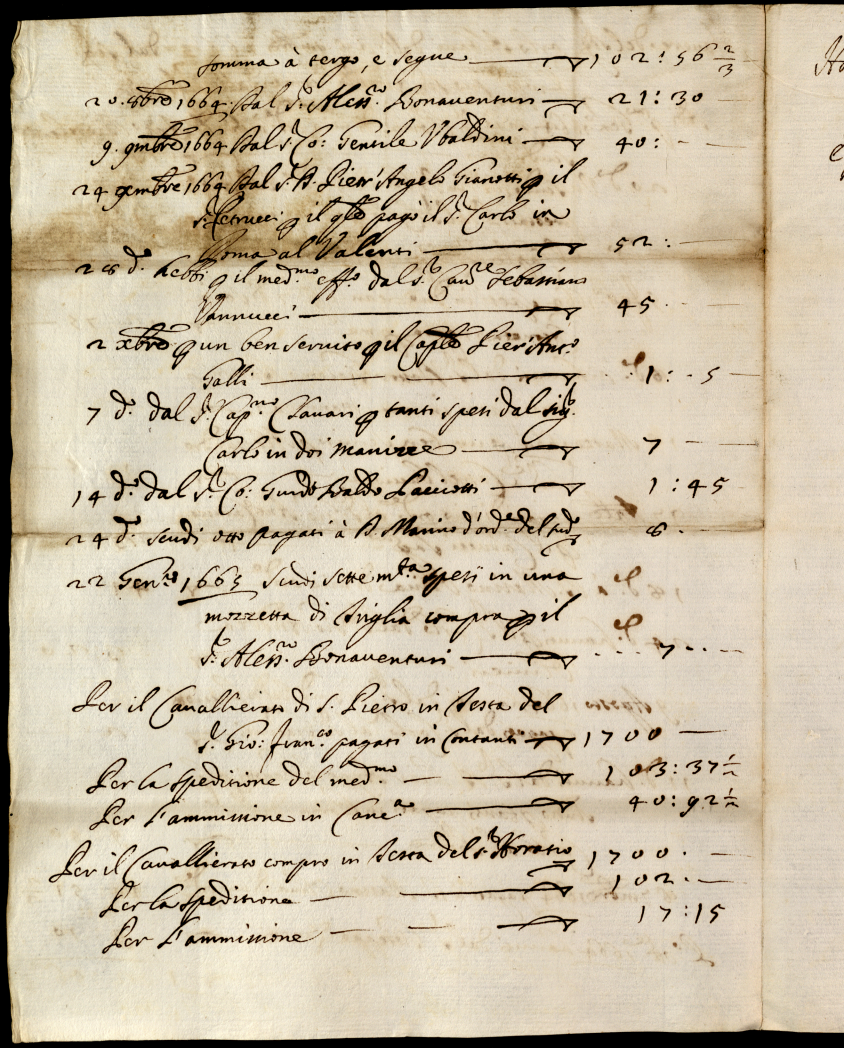 somma à tergo, e segue 102:56 2/3
20. 8bre 1664. Dal S.r Aless.ro Bonaventuri 21:30
9. 9mbre 1664 Dal S.r Co: Gentile Ubaldini 40: -
24 9mbre 1664 Dal S.r D. Pietr'Angelo Gianotti p il
S.r Petrucci p il qle pagò il S.r Carlo in
Roma al Valenti 52: -
28 d.o hebbi p il med.mo eff.o dal S.r Cav.re Sebastiano
Vannucci 45
2 xbre p un ben servito p il Cap.le Pier'Ant.o
Galli 1: - 5
7 d.o dal S.r Cap.no Clavari p tanti spesi dal sig.r
Carlo in doi manizze 7
14 d.o dal S.r Co: Guido Baldo Pacciotti 1:45
24 d.o scudi otto pagati à D. Marino d'ord.e del sud.o 8.
22 Gen.ro 1665 scudi sette m.ta spesi in una
mozzetta di triglia compra p il
S.r Aless.ro Bonaventuri 7
Per il Cavallierato di S. Pietro in testa del
S.r Gio: Fran.co pagati in contanti 1700
Per la speditione del med.mo 103:37 1/2
Per l'ammissione in Canc.a 40:92 1/2
Per il Cavallierato compro in testa del S.r Horatio 1700.
Per la speditione 102.
Per l'ammissione 17:15
Ho
e